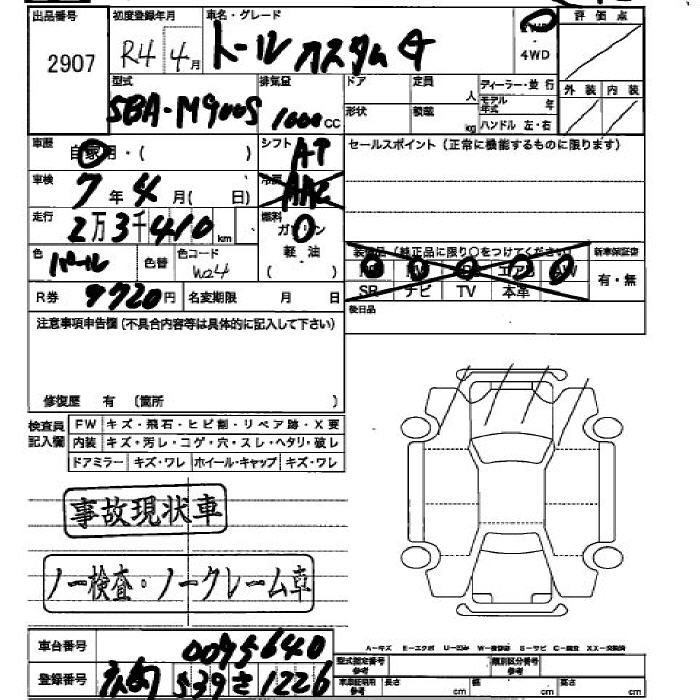 出品番号 初度登録年月 車名・グレード 評価点
2907 R4 4月 トール カスタム G ・4WD
外装 内装
型式 排気量 ドア 定員 ディーラー・並行
SBA-M900S 1000CC 人 モデル年式 年
形状 積載 kg ハンドル 左・右
車歴 自家用・( ) シフト AT セールスポイント(正常に機能するものに限ります)
車検 7年4月( 日) 冷房 AAC
走行 2万3千410km 燃料 ガソリン
色 パール 色替 色コード W24 軽油 ( )
装備品(純正品に限り○をつけてください) 新車保証書
PS PW エアB AW 有・無
SR ナビ TV 本革
R券 9720円 名変期限 月 日
後日品
注意事項申告欄(不具合内容等は具体的に記入して下さい)
修復歴 有 (箇所 )
検査員記入欄 FW キズ・飛石・ヒビ割・リペア跡・X要
内装 キズ・汚レ・コゲ・穴・スレ・ヘタリ・破レ
ドアミラー キズ・ワレ ホイール・キャップ キズ・ワレ
事故現状車
ノー検査・ノークレーム車
A−キズ E−エクボ U−凹み W−補修跡 S−サビ C−腐食 XX−交換済
車台番号 0095640
型式指定番号 参考 類別区分番号 参考
登録番号 539 さ 1226
車庫証明用 参考 長さ cm 幅 cm 高さ cm